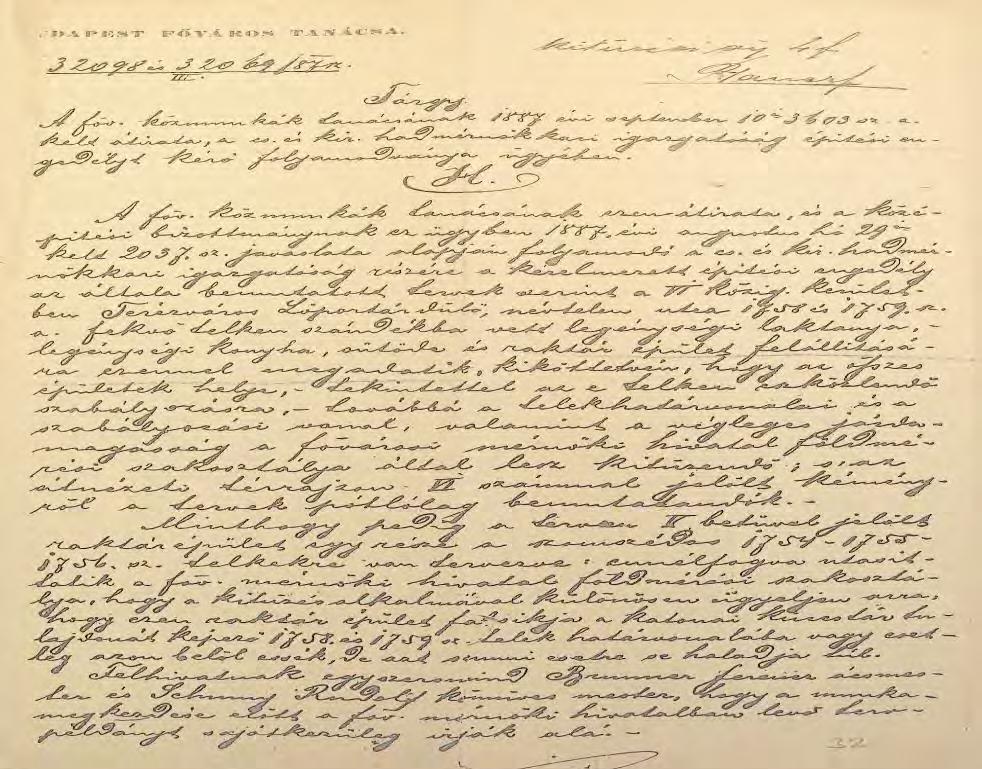 BUDAPEST FŐVÁROS TANÁCSA.
32098 és 32069/887 sz.
III.
Kitűzési ügy 4 f.
Tárgy
A főv. közmunkák tanácsának 1887 évi september 10én 3603 sz. a.
kelt átirata, a cs. és kir. hadmérnökkari igazgatóság építési en-
gedélyt kérő folyamodványa ügyében.
H.
A főv. közmunkák tanácsának ezen átirata, és a közé-
pitési bizottmánynak ez ügyben 1887. évi augustus hó 29én
kelt 2037. sz. javaslata alapján folyamodó a cs. és kir. hadmér-
nökkari igazgatóság részére a kérelmezett épitési engedély
az általa bemutatott tervek szerint a VI közig. kerület-
ben Terézváros Lőportárdülő, névtelen utcza 1758 és 1759. sz.
a. fekvő telken szándékba vett legénységi laktanya, -
legénységi konyha, sütöde és raktár épület felállításá-
ra ezennel megadatik, kiköttetvén, hogy az összes
épületek helye, - tekintettel az e telken eszközlendő
szabályozásra, - továbbá a telekhatárvonalai és a
szabályozási vonal, valamint a végleges járda-
magasság a fővárosi mérnöki hivatal földmé-
rési szakosztálya által lesz kitűzendő; s az
átnézeti térrajzon VI számmal jelölt kémény-
ről a tervek pótlólag bemutatandók. -
Minthogy pedig a terven II betüvel jelölt
raktárépület egy része a szomszédos 1754-1755-
1756. sz. telkekre van tervezve: ennélfogva utasít-
tatik a főv. mérnöki hivatal földmérési szakosztá-
lya, hogy a kitüzés alkalmával különösen ügyeljen arra,
hogy ezen raktár épület falsikja a katonai kincstár tu-
lajdonát képező 1758. és 1759 sz. telek határvonalába vagy eset-
leg azon belől essék, de azt semmi esetre se haladja túl.
Felhivatnak egyszersmind Brunner ácsmes-
ter és Rudolf kőmüves mester, hogy a munka-
megkezdése előtt a főv. mérnöki hivatalban levő terv-
példányt sajátkezüleg irják alá. -
32